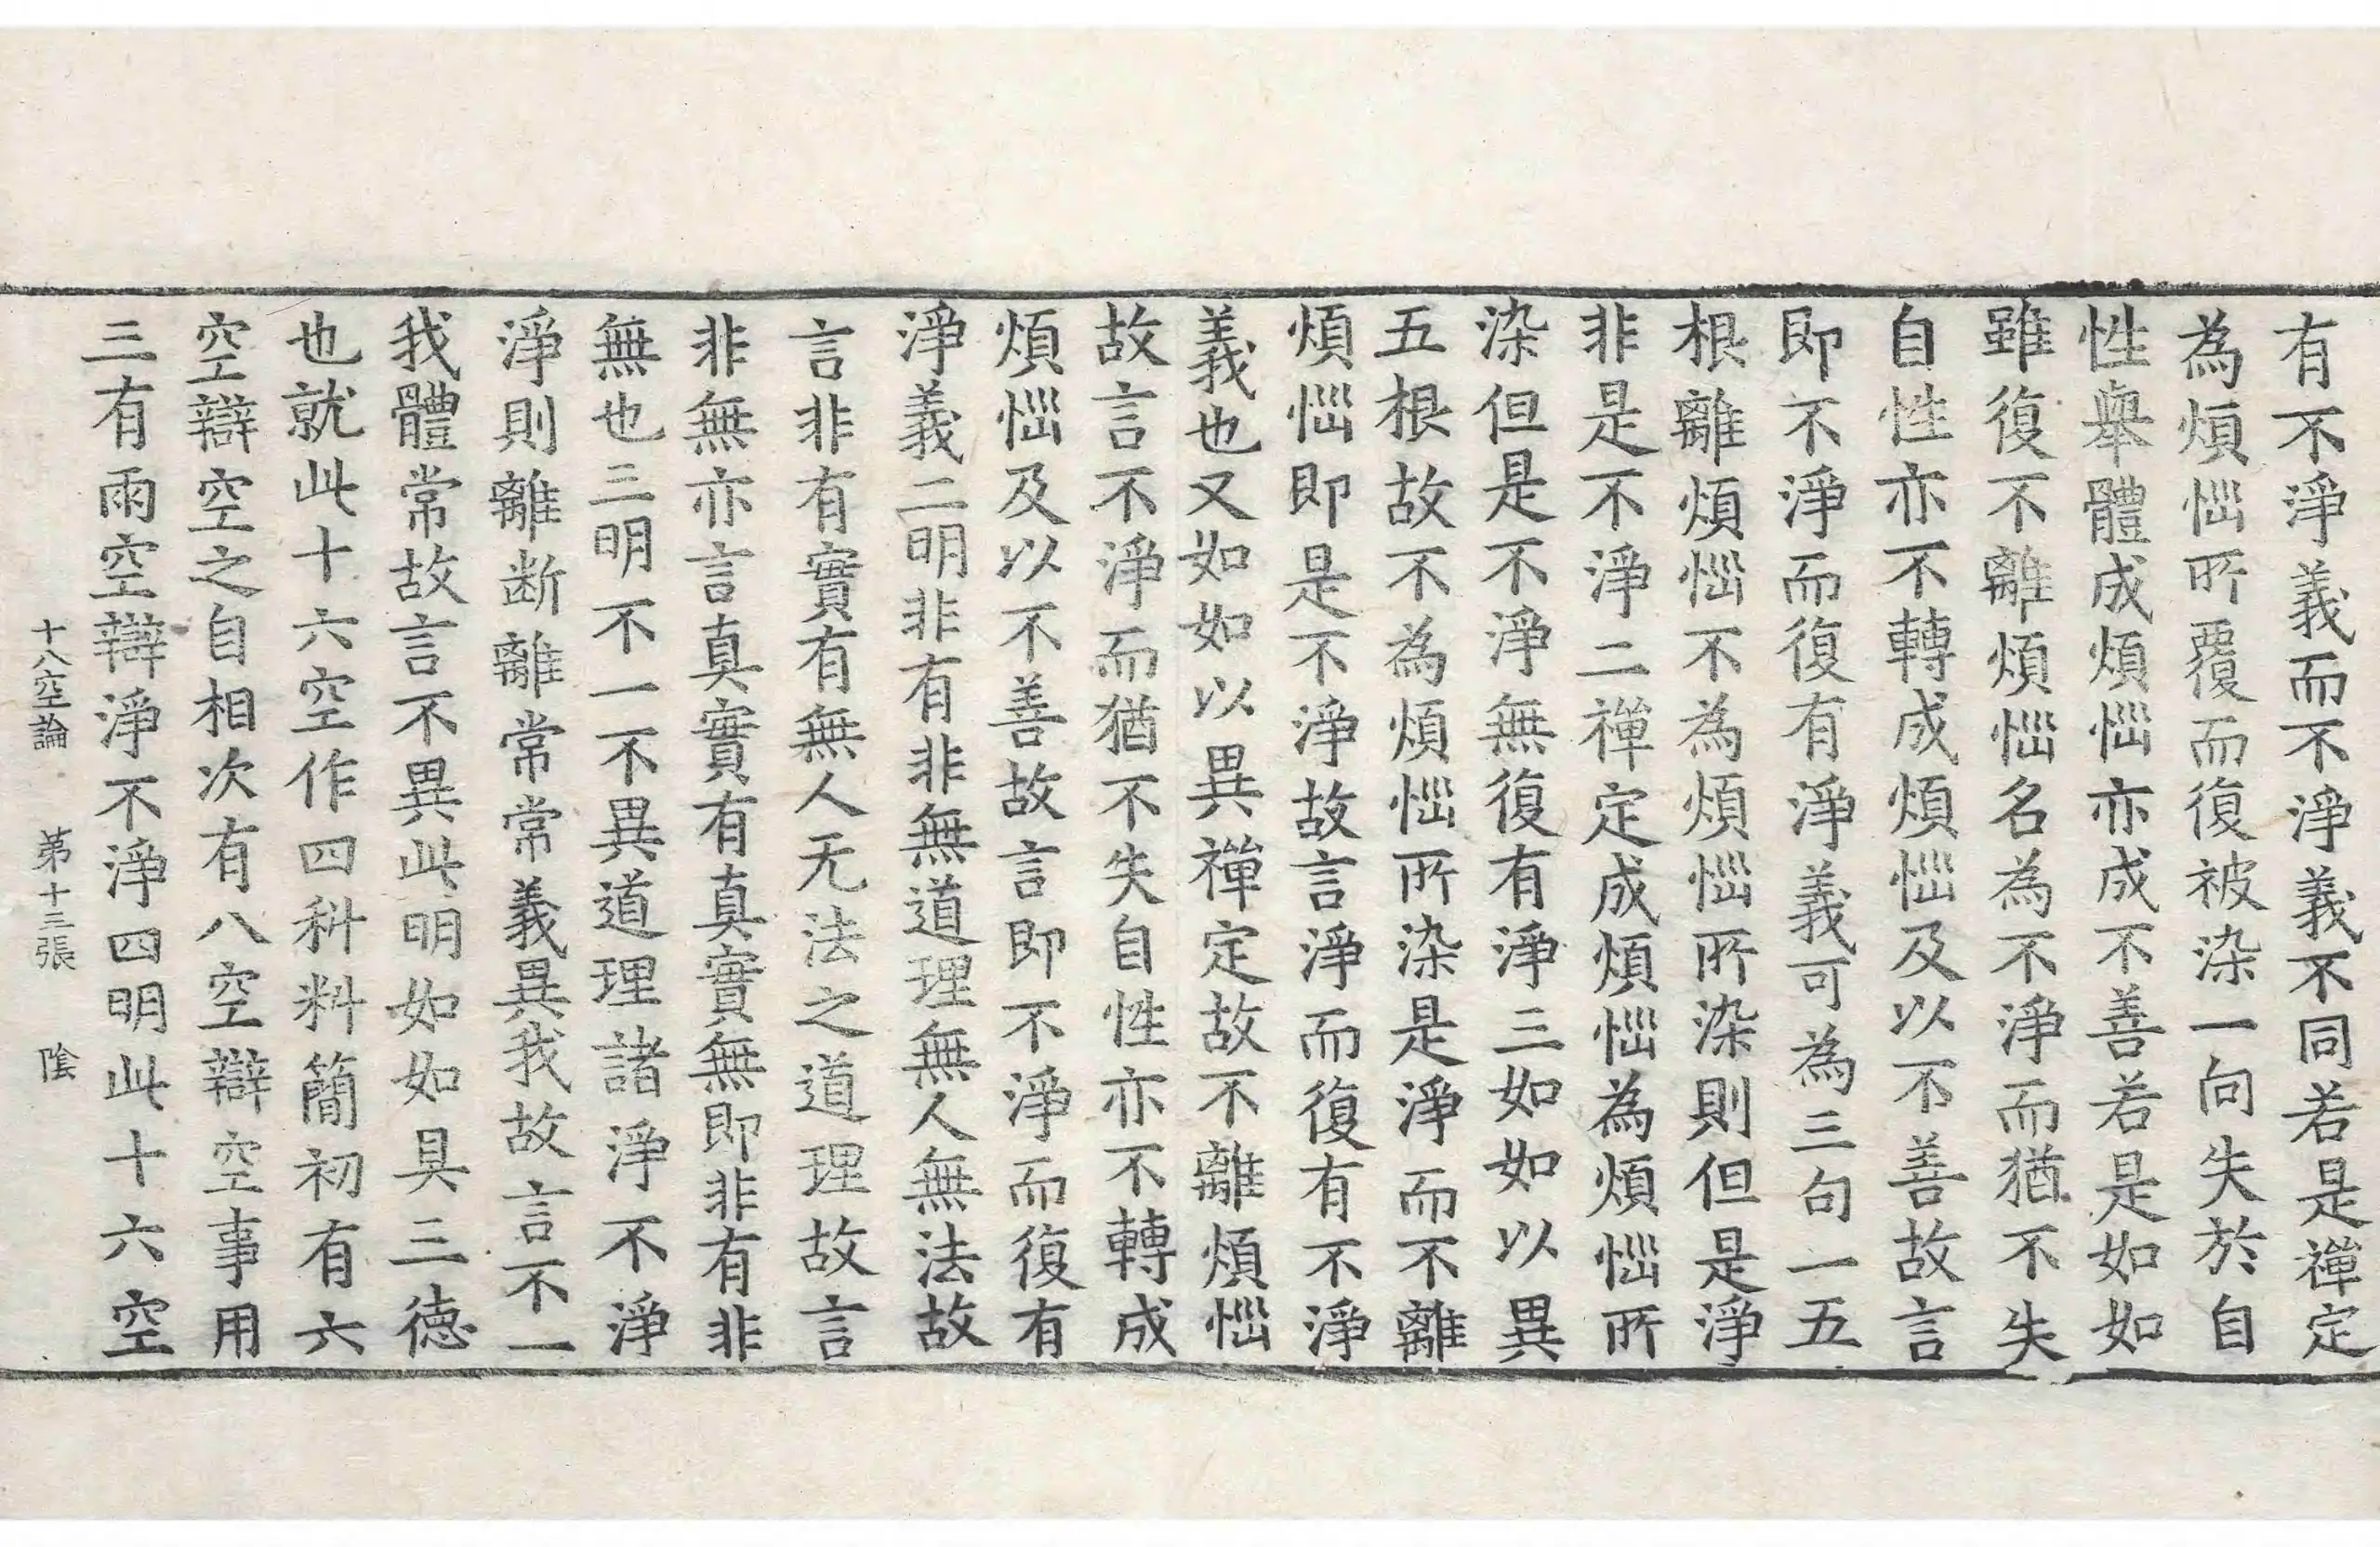 有不淨義而不淨義不同若是禪定
為煩惱所覆而復被染一向失於自
性舉體成煩惱亦成不善若是如如
雖復不離煩惱名為不淨而猶不失
自性亦不轉成煩惱及以不善故言
即不淨而復有淨義可為三句一五
根離煩惱不為煩惱所染則但是淨
非是不淨二禪定成煩惱為煩惱所
染但是不淨無復有淨三如如以異
五根故不為煩惱所染是淨而不離
煩惱即是不淨故言淨而復有不淨
義也又如如以異禪定故不離煩惱
故言不淨而猶不失自性亦不轉成
煩惱及以不善故言即不淨而復有
淨義二明非有非無道理無人無法故
言非有實有無人无法之道理故言
非無亦言真實有真實無即非有非
無也三明不一不異道理諸淨不淨
淨則離断離常常義異我故言不一
我體常故言不異此明如如具三德
也就此十六空作四科料簡初有六
空辯空之自相次有八空辯空事用
三有兩空辯淨不淨四明此十六空
十八空論 第十三張 陰